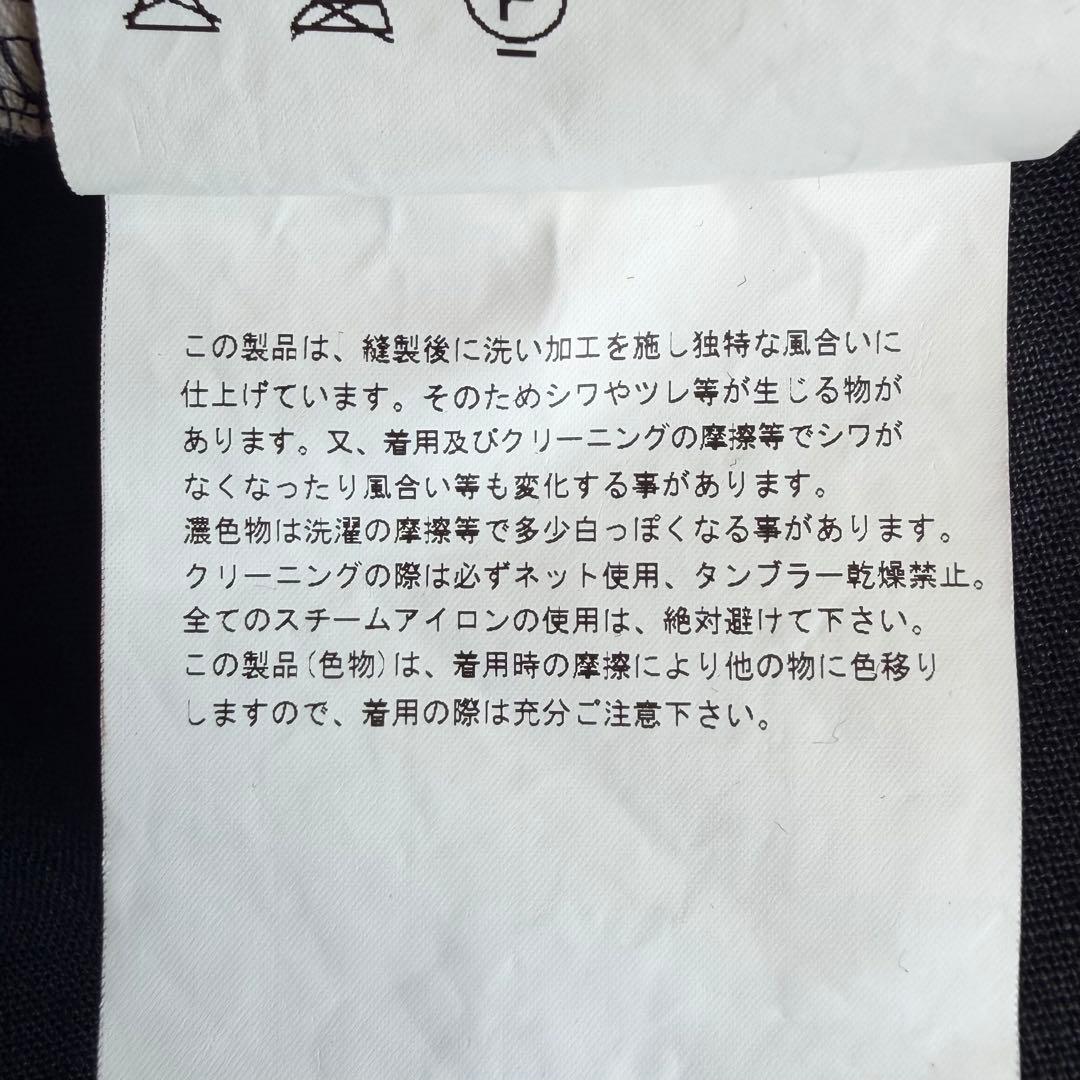 この製品は、縫製後に洗い加工を施し独特な風合いに
仕上げています。そのためシワやツレ等が生じる物が
あります。又、着用及びクリーニングの摩擦等でシワが
なくなったり風合い等も変化する事があります。
濃色物は洗濯の摩擦等で多少白っぽくなる事があります。
クリーニングの際は必ずネット使用、タンブラー乾燥禁止。
全てのスチームアイロンの使用は、絶対避けて下さい。
この製品(色物)は、着用時の摩擦により他の物に色移り
しますので、着用の際は充分ご注意下さい。